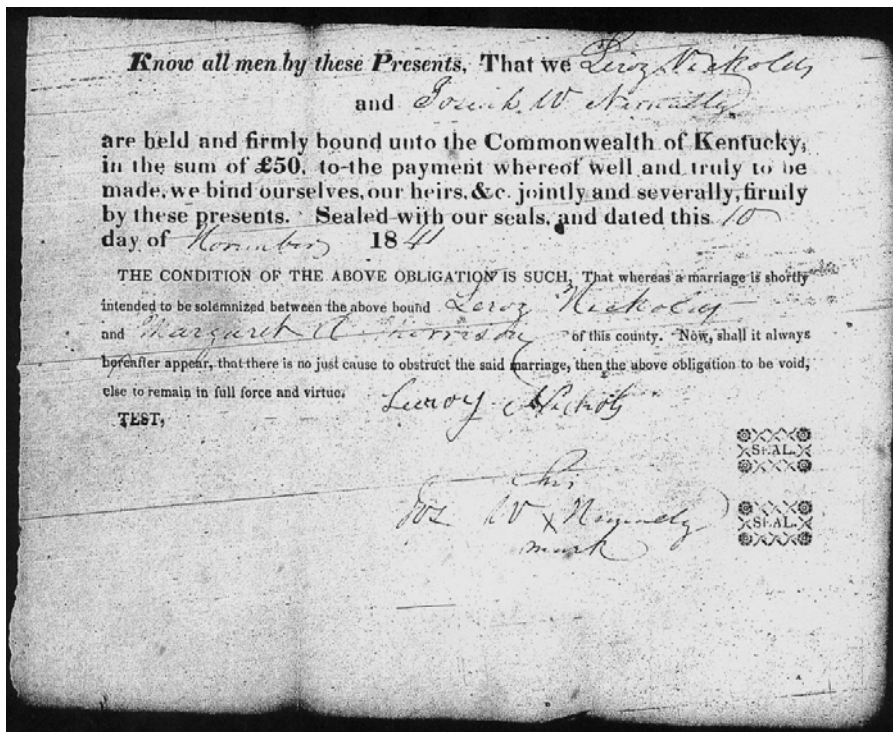 Know all men by these Presents, That we Leroy Nickols
and Joseph W
are held and firmly bound unto the Commonwealth of Kentucky,
in the sum of £50, to the payment whereof well and truly to be
made, we bind ourselves, our heirs, &c. jointly and severally, firmly
by these presents. Sealed with our seals, and dated this 10
day of November 1841
THE CONDITION OF THE ABOVE OBLIGATION IS SUCH, That whereas a marriage is shortly
intended to be solemnized between the above bound Leroy Nickols
and Margaret A of this county. Now, shall it always
hereafter appear, that there is no just cause to obstruct the said marriage, then the above obligation to be void,
else to remain in full force and virtue.
Leroy Nichols
TEST,
SEAL.
his
Jos W X
mark
SEAL.